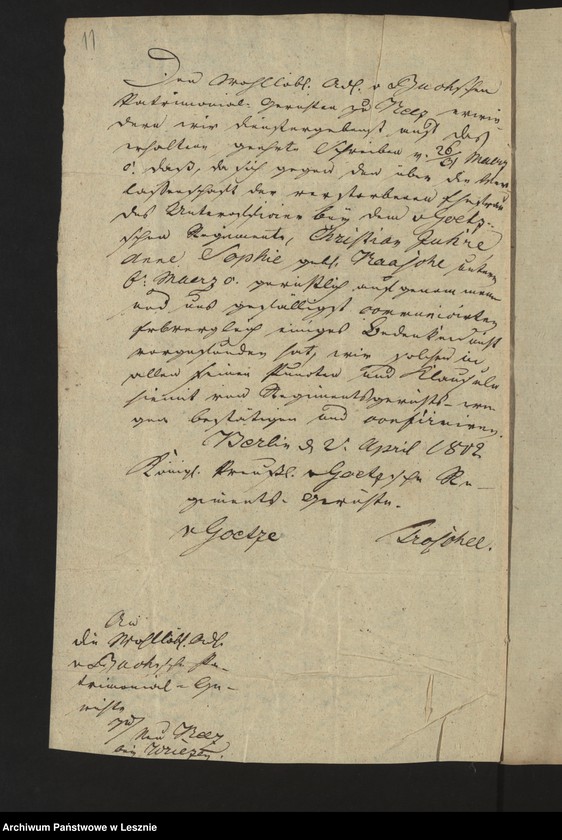 11
Den Wohllöbl. Adl. v Zuchschen
Patrimonial-Gerichten zu Reez erwie-
dern wir dienstergebenst auf das
erhaltene geehrte Schreiben v. 26/31 Maerz
c. daß, da sich gegen den über die Ver-
lassenschaft der verstorbenen Ehefrau
des Unterofficier bey dem v Goetz-
schen Regimente, Christian Juhre
Anne Sophie geb. Kaaschke, unterm
6t. Maerz c. gerichtlich aufgenommenen
und uns gefälligst communicirten
Erbvergleich einiges Bedenken nicht
vorgefunden hat, wir solchen in
allen seinen Puncten und Klauseln
hiemit von Regimentsgerichts-we-
gen bestätigen und confirmiren.
Berlin d 2. April 1802
Königl. Preuß. v Goetzesche Re-
giments-Gerichte.
v Goetze Troschel.
An
die Wohllöbl. Adl.
v Zuchsche Pa-
trimonial-Ge-
richte
zu
Neu Reez
bey Wriezen.
Archiwum Państwowe w Lesznie